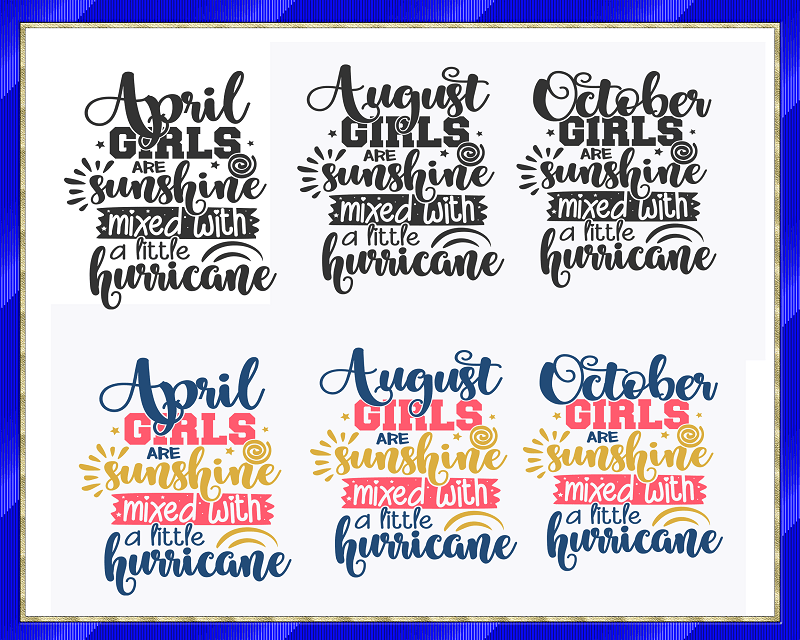 April
GIRLS
ARE
sunshine
mixed with
a little
hurricane
August
GIRLS
ARE
sunshine
mixed with
a little
hurricane
October
GIRLS
ARE
sunshine
mixed with
a little
hurricane
April
GIRLS
ARE
sunshine
mixed with
a little
hurricane
August
GIRLS
ARE
sunshine
mixed with
a little
hurricane
October
GIRLS
ARE
sunshine
mixed with
a little
hurricane